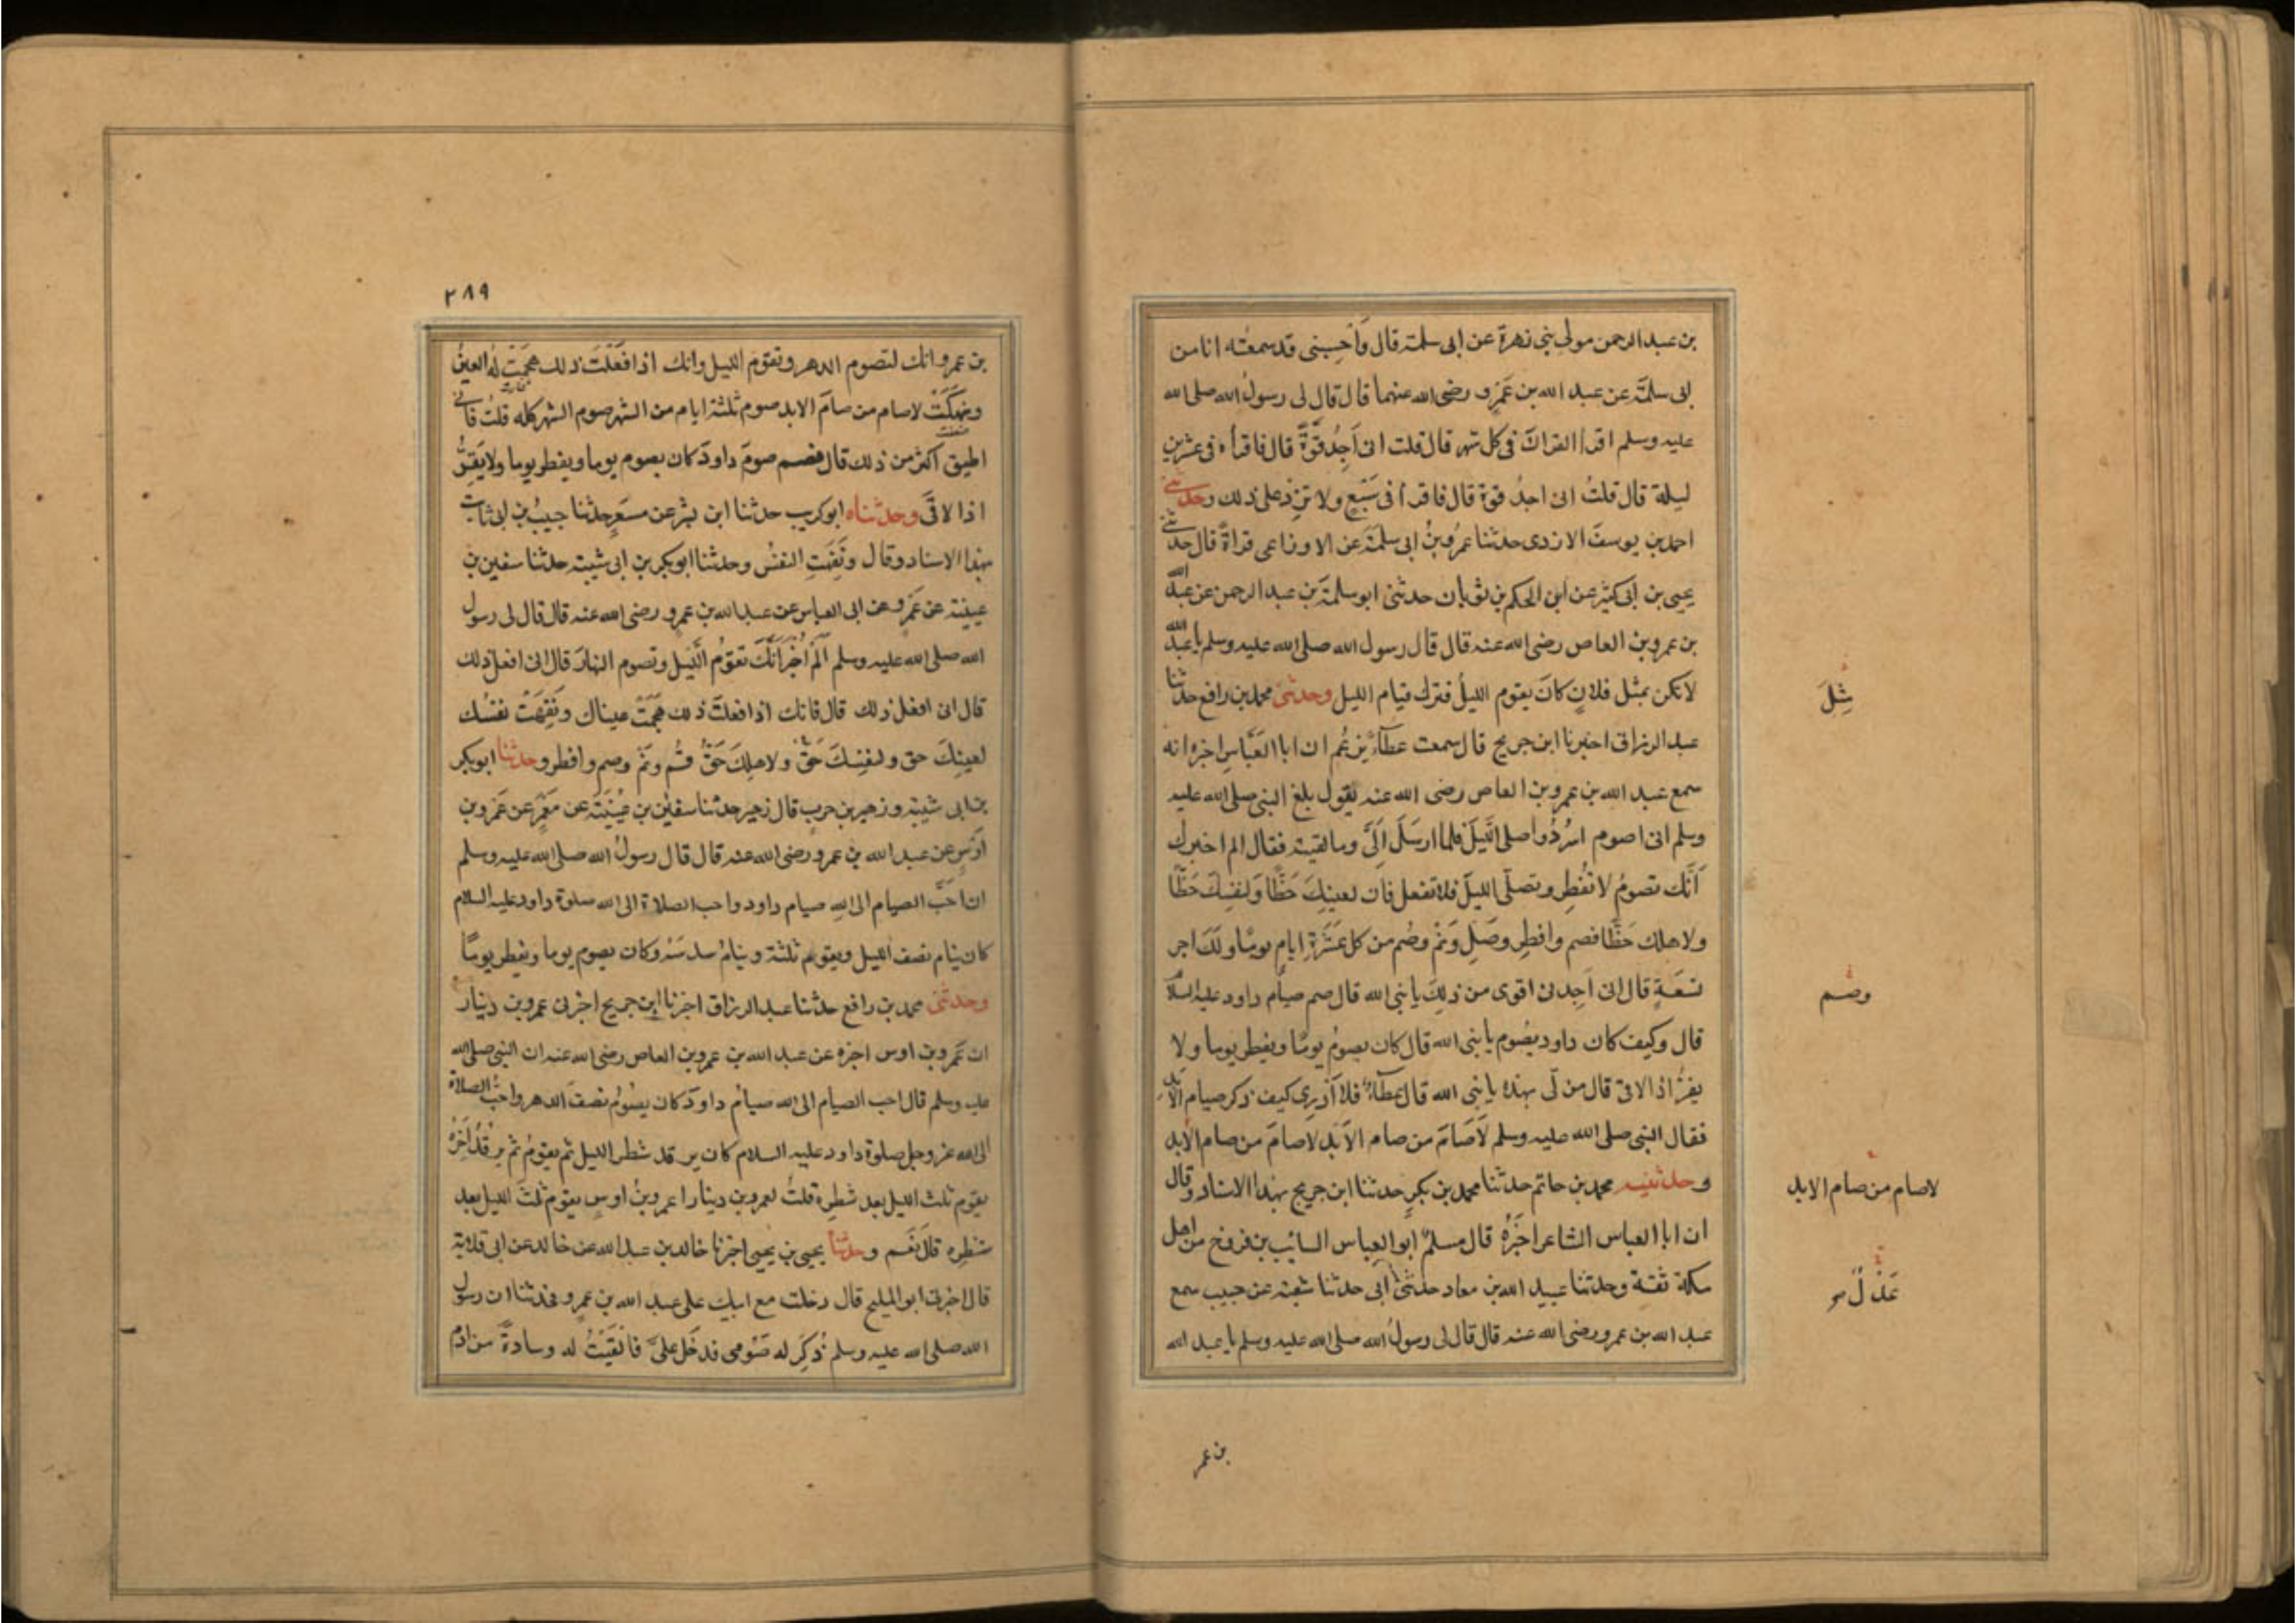 بن عبد الرحمن مولى بنى زهرة عن ابى سلمة قال وَاَحْسِبنى قد سمعته انا من
ابى سلمَةَ عن عبد الله بن عَمْرٍو رضى الله عنهما قال قال لى رسولُ الله صلى الله
عليه وسلم اقرأ القرانَ فى كل شهر قال قلت انى اَجِدُ قُوَّةً قال فاقرأه فى عشرين
ليلة قال قلتُ انى اجدُ قوة قال فاقرأه فى سَبْعٍ ولا تزِدْ على ذلك وحدثنى
احمد بن يوسفَ الازدى حدثنا عمرُو بنُ ابى سلمَةَ عن الاوزاعى قراةً قال حدثنى
يحيى بن ابى كثير عن ابن الحكم بن ثوبان حدثنى ابو سلمة بن عبد الرحمن عن عبد الله
بن عمرو بن العاص رضى الله عنه قال قال رسول الله صلى الله عليه وسلم يا عبد الله
لا تكن بمثل فلانٍ كانَ يقوم الليلَ فترك قيام الليل وحدثنى محمد بن رافع حدثنا
مِثِلَ
عبد الرزاق اخبرنا ابن جريج قال سمعت عطاءً يزعُم ان ابا العَبَّاسِ اخبره انه
سمع عبد الله بن عمرو بن العاص رضى الله عنه يقول بلغ النبى صلى الله عليه
وسلم انى اصوم اسْرُدُ واصلى اللَّيلَ فلما ارسَلَ اِلَىَّ وما لقيته فقال الم اخبرك
اَنَّك تصومُ لا تُفْطِر وتصلّى الليلَ فلا تفعل فان لعينِكَ حَظًّا وَلنفسِكَ حَظًّا
ولاهلك حَظًّا فصم وافطِر وصَلِّ وَنَمْ وصُم من كل عَشَرَةِ ايام يومًا ولَكَ اجر
تسعَةٍ قال انى اَجِدنى اقوى من ذلِكَ يا نبى الله قال صم صيام داود عليه السلام
وصم
قال وكيف كان داود يصُوم يا نبى الله قال كان يصومُ يومًا ويفطر يوما ولا
يفرُّ اذا لاقى قال من لى بهذه يا نبى الله قال عطاءٌ فلا اَدْرِى كيف ذكر صيام الابَدِ
فقال النبى صلى الله عليه وسلم لَاصَامَ من صام الاَبَد لاصامَ من صام الابد
وحدثنيه محمد بن حاتم حدثنا محمد بن بكرٍ حدثنا ابن جريج بهذا الاسناد وقال
لاصام من صام الابد
ان ابا العباس الشاعر اخبَرَهُ قال مسلمٌ ابو العباس السائب بن فروخ من اهل
مكة ثقة وحدثنا عبيد الله بن معاد حدثنى ابى حدثنا شعبة عن حبيب سمع
عَدْلٌ
عبد الله بن عمرو رضى الله عنه قال قال لى رسولُ الله صلى الله عليه وسلم يا عبد الله
بن عمر
٢٨٩
بن عمرو انك لتصوم الدهر وتقوم الليل وانك اذا فعَلْتَ ذلك هجَمَتْ لَهُ العينُ
ونهكَتْ لاصام من صامَ الابد صوم ثلثة ايام من الشهر صوم الشهر كله قلتُ فانى
اطيق اكثر من ذلك قال فصم صومَ داودَ كان يصوم يوما ويفطر يوما ولا يَفِرُّ
اذا لاقَى وحدثناه ابو كريب حدثنا ابن بشر عن مسعَرٍ حدثنا حبيبُ بن ابى ثابت
بهذا الاسناد وقال ونَفِهَتِ النفسُ وحدثنا ابو بكر بن ابى شيبة حدثنا سفين بن
عيينة عن عَمْرٍو عن ابى العباس عن عبد الله بن عمرو رضى الله عنه قال قال لى رسول
الله صلى الله عليه وسلم اَلَمْ اُخْبَرْ اَنَّكَ تقومُ اللَّيلَ وتصوم النهارَ قال انى افعل ذلك
قال انى افعل ذلك قال فانك اذا فعلتَ ذلك هَجَمَتْ عيناك ونَفِهَتْ نفسُك
لعينِكَ حق ولنفسِكَ حَقٌّ ولاهلِكَ حَقٌّ قُمْ ونَمْ وصم وافطر وحدثنا ابو بكر
بن ابى شيبة وزهير بن حرب قال زهير حدثنا سفين بن عُيَيْنَةَ عن عَمْرٍو عن عَمْرو بن
اوْسٍ عن عبد الله بن عمرو رضى الله عنه قال قال رسولُ الله صلى الله عليه وسلم
ان احَبَّ الصيام الى اللهِ صيام داود واحب الصلاة الى الله صلوة داود عليه السلام
كان ينام نصف الليل ويقوم ثلثة وينامُ سدسَهُ وكان يصوم يوما ويفطر يومًا
وحدثنى محمد بن رافع حدثنا عبد الرزاق اخبرنا ابن جريج اخبرنى عمرو بن دينار
ان عَمْرو بن اوس اخبره عن عبد الله بن عمرو بن العاص رضى الله عنه ان النبى صلى الله
عليه وسلم قال احب الصيام الى الله صيامُ داودَ كان يصُومُ نصفَ الدهر واحبُّ الصلاة
الى الله عز وجل صلوة داود عليه السلام كان يرقد شطر الليل ثم يقومُ ثم يرقُدُ اخِرَهُ
يقوم ثلث الليل بعد شطرِه قلتُ لعمرو بن دينار اعمرو بنُ اوسٍ يقوم ثلثَ الليل بعد
شطرِه قال نَعَم وحدثنا يحيى بن يحيى اخبرنا خالد بن عبد الله عن خالد عن ابى قلابة
قال اخبرنى ابو المليح قال دخلت مع ابيك على عبد الله بن عمرو فحدثنا ان رسول
الله صلى الله عليه وسلم ذُكِرَ له صَوْمى فدخَل علىَّ فالقَيْتُ له وسادةً من ادمٍ